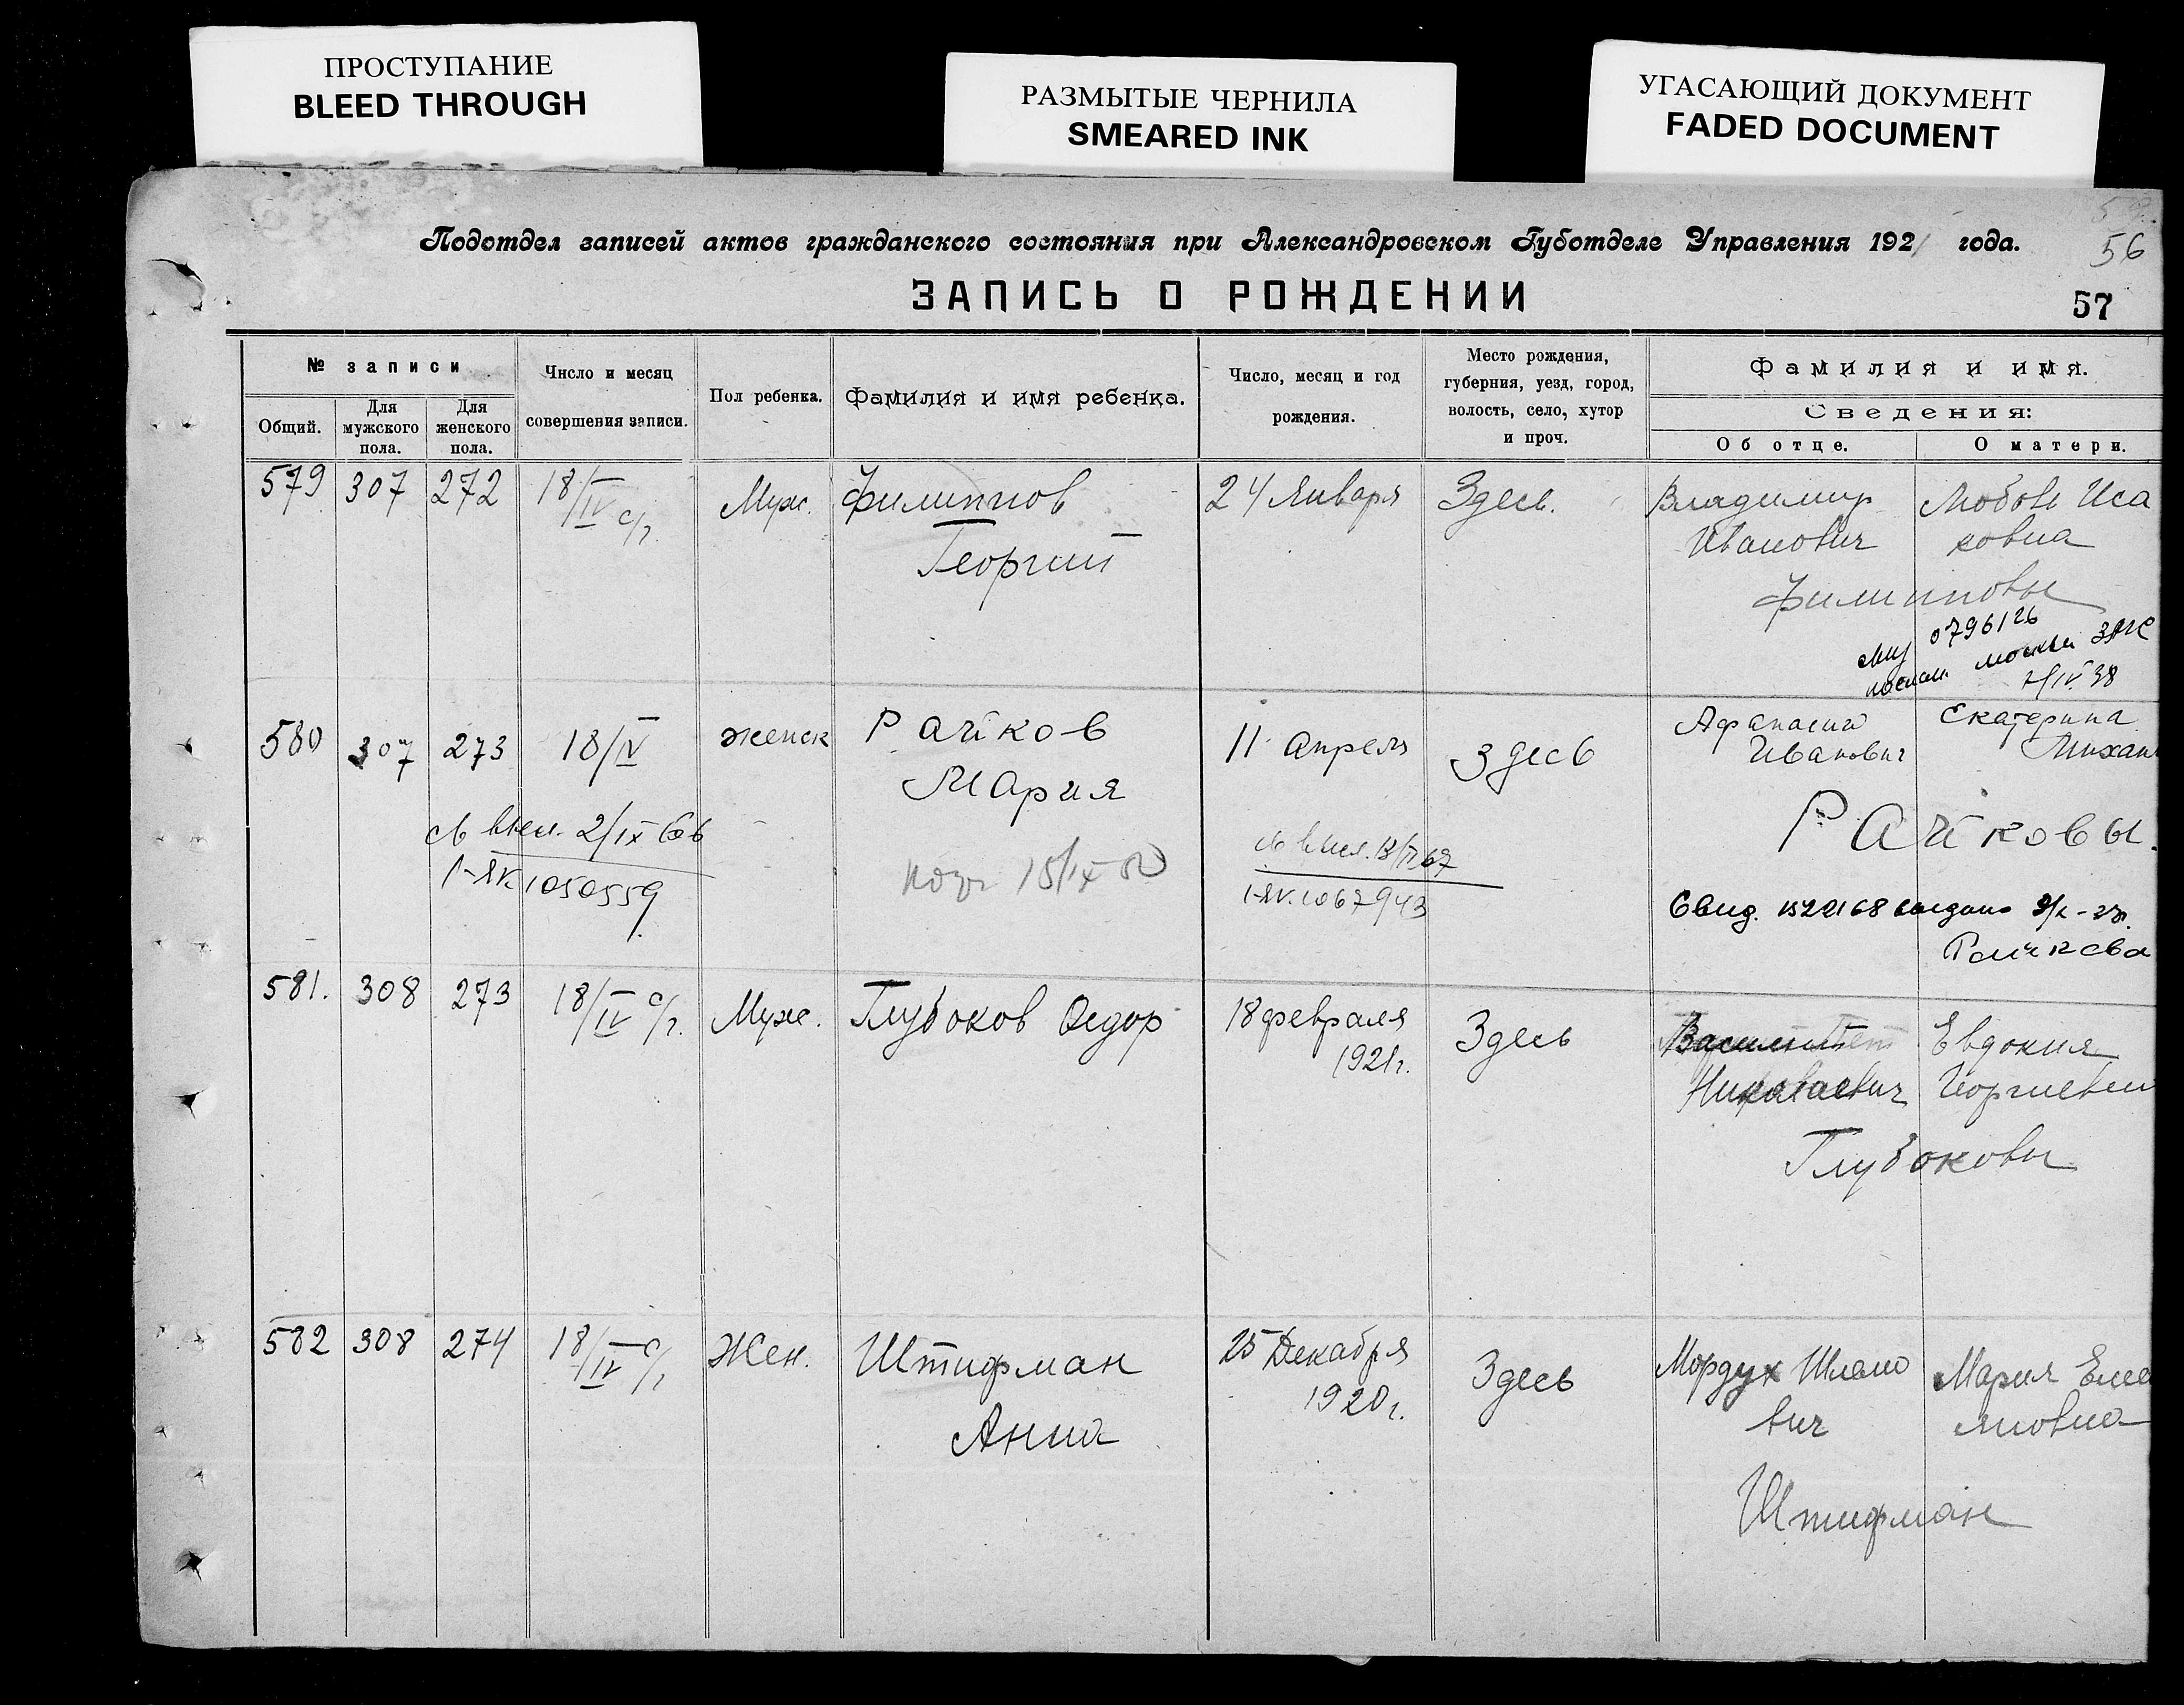 ПРОСТУПАНИЕ
BLEED THROUGH
РАЗМЫТЫЕ ЧЕРНИЛА
SMEARED INK
УГАСАЮЩИЙ ДОКУМЕНТ
FADED DOCUMENT
Подотдел записей актов гражданского состояния при Александровском Губотделе Управления 1921 года.
56
ЗАПИСЬ О РОЖДЕНИИ
57
№ записи
Общий.
Для мужского пола.
Для женского пола.
Число и месяц
совершения записи.
Пол ребенка.
Фамилия и имя ребенка.
Число, месяц и год
рождения.
Место рождения,
губерния, уезд, город,
волость, село, хутор
и проч.
Фамилия и имя.
Сведения:
Об отце.
О матери.
579 307 272 18/IV с/г. Муж. Филиппов 24 Января Здесь. Владимир Любовь Иса
Георгий Иванович ковна
Филипповы
0796126
ЗАГС
7/IV 38
580 307 273 18/IV женск Райков 11 апреля Здесь Афанасий Екатерина
Мария Иванович Михаи
Райковы.
2/IX 66
1-ЯК 1050559
15/IX 50
67
1-ЯК. 1067943
Свид. выдано
Райкова
581. 308 273 18/IV с/г. Муж. Глубоков Федор 18 февраля Здесь Евдокия
1921г. Николаевич Георгиевн
Глубоковы
582 308 274 18/IV с/г Жен. Штифман 25 Декабря Здесь Мордух Шлемо Мария
Анна 1920г. вич
Штифман